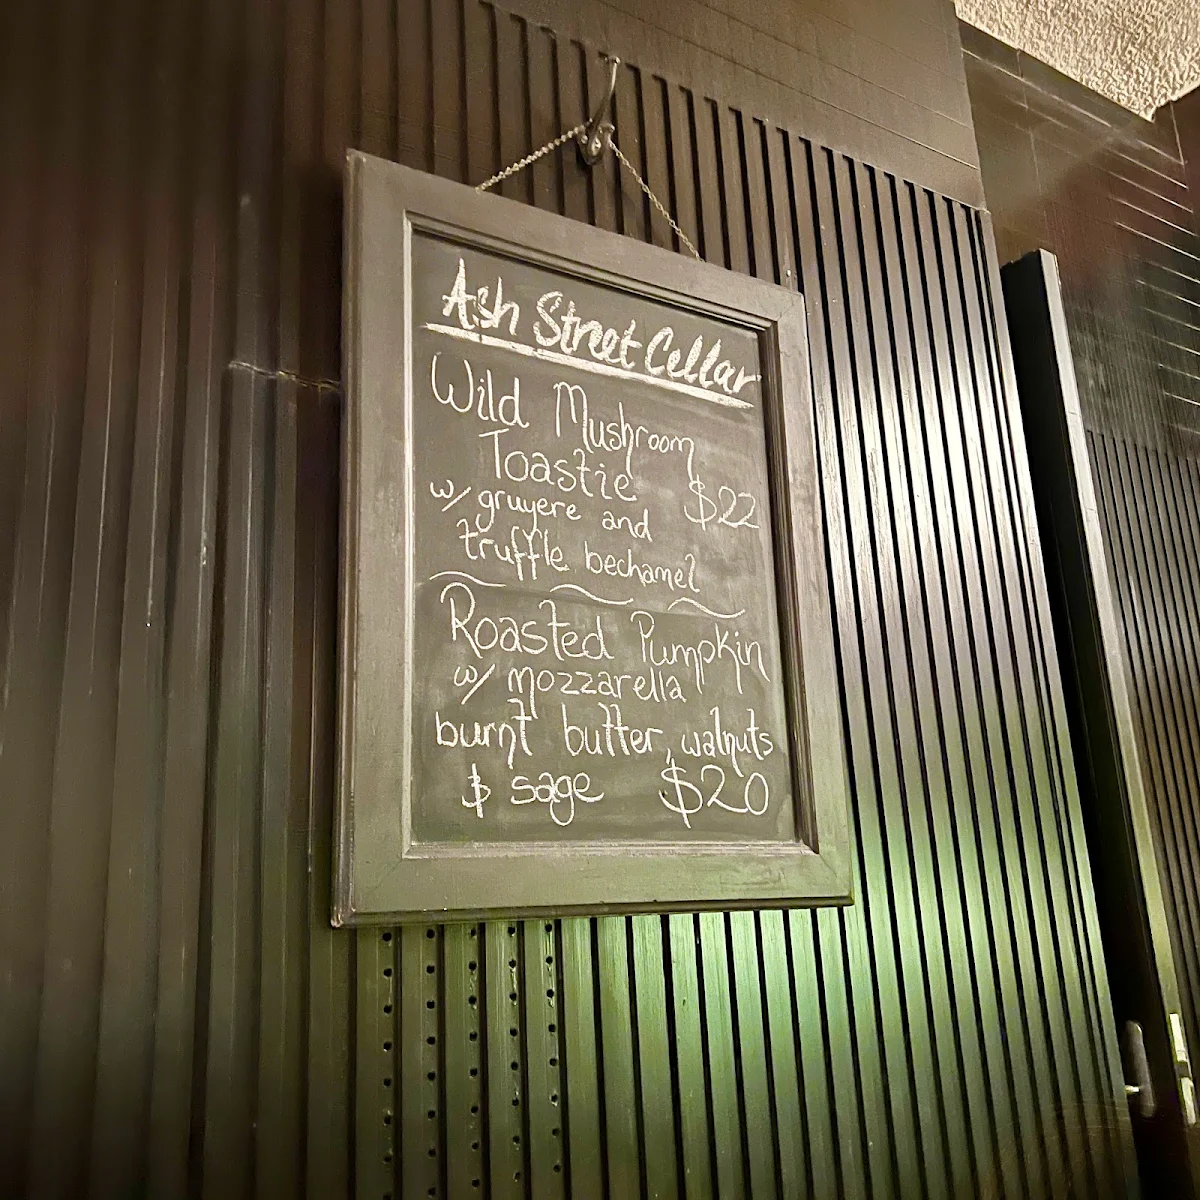 Ash Street Cellar
Wild Mushroom
Toastie $22
w/ gruyere and
truffle bechamel
Roasted Pumpkin
w/ mozzarella
burnt butter, walnuts
& sage $20